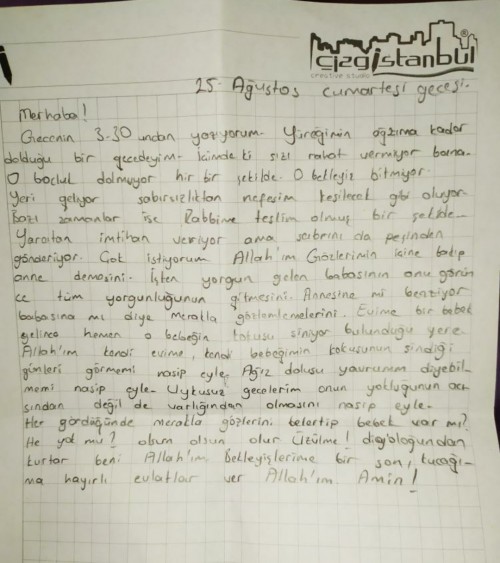 çizgistanbul
creative studio
25. Ağustos cumartesi gecesi.
Merhaba!
Gecenin 3.30 undan yazıyorum. Yüreğimin ağzıma kadar
dolduğu bir gecedeyim. İçimdeki sızı rahat vermiyor bana.
O boşluk dolmuyor hiç bir şekilde. O bekleyiş bitmiyor.
Yeri geliyor sabırsızlıktan nefesim kesilecek gibi oluyor.
Bazı zamanlar ise Rabbime teslim olmuş bir şekilde...
Yaratan imtihan veriyor ama sabrını da peşinden
gönderiyor. Çok istiyorum Allah'ım Gözlerimin içine bakıp
anne demesini. İşten yorgun gelen babasının onu görün
ce tüm yorgunluğunun gitmesini. Annesine mi benziyor
babasına mı diye merakla gözlemlemelerini. Evime bir bebek
gelince hemen o bebeğin kokusu siniyor bulunduğu yere.
Allah'ım kendi evime, kendi bebeğimin kokusunun sindiği
günleri görmemi nasip eyle. Ağız dolusu yavrum diyebil
memi nasip eyle. Uykusuz gecelerim onun yokluğunun acı
sından değil de varlığından olmasını nasip eyle.
Her gördüğünde merakla gözlerini belertip bebek var mı?
He yok mu? olsun olsun olur Üzülme! diyaloğundan
kurtar beni Allah'ım Bekleyişlerime bir son, kucağı-
ma hayırlı evlatlar ver Allah'ım Amin!